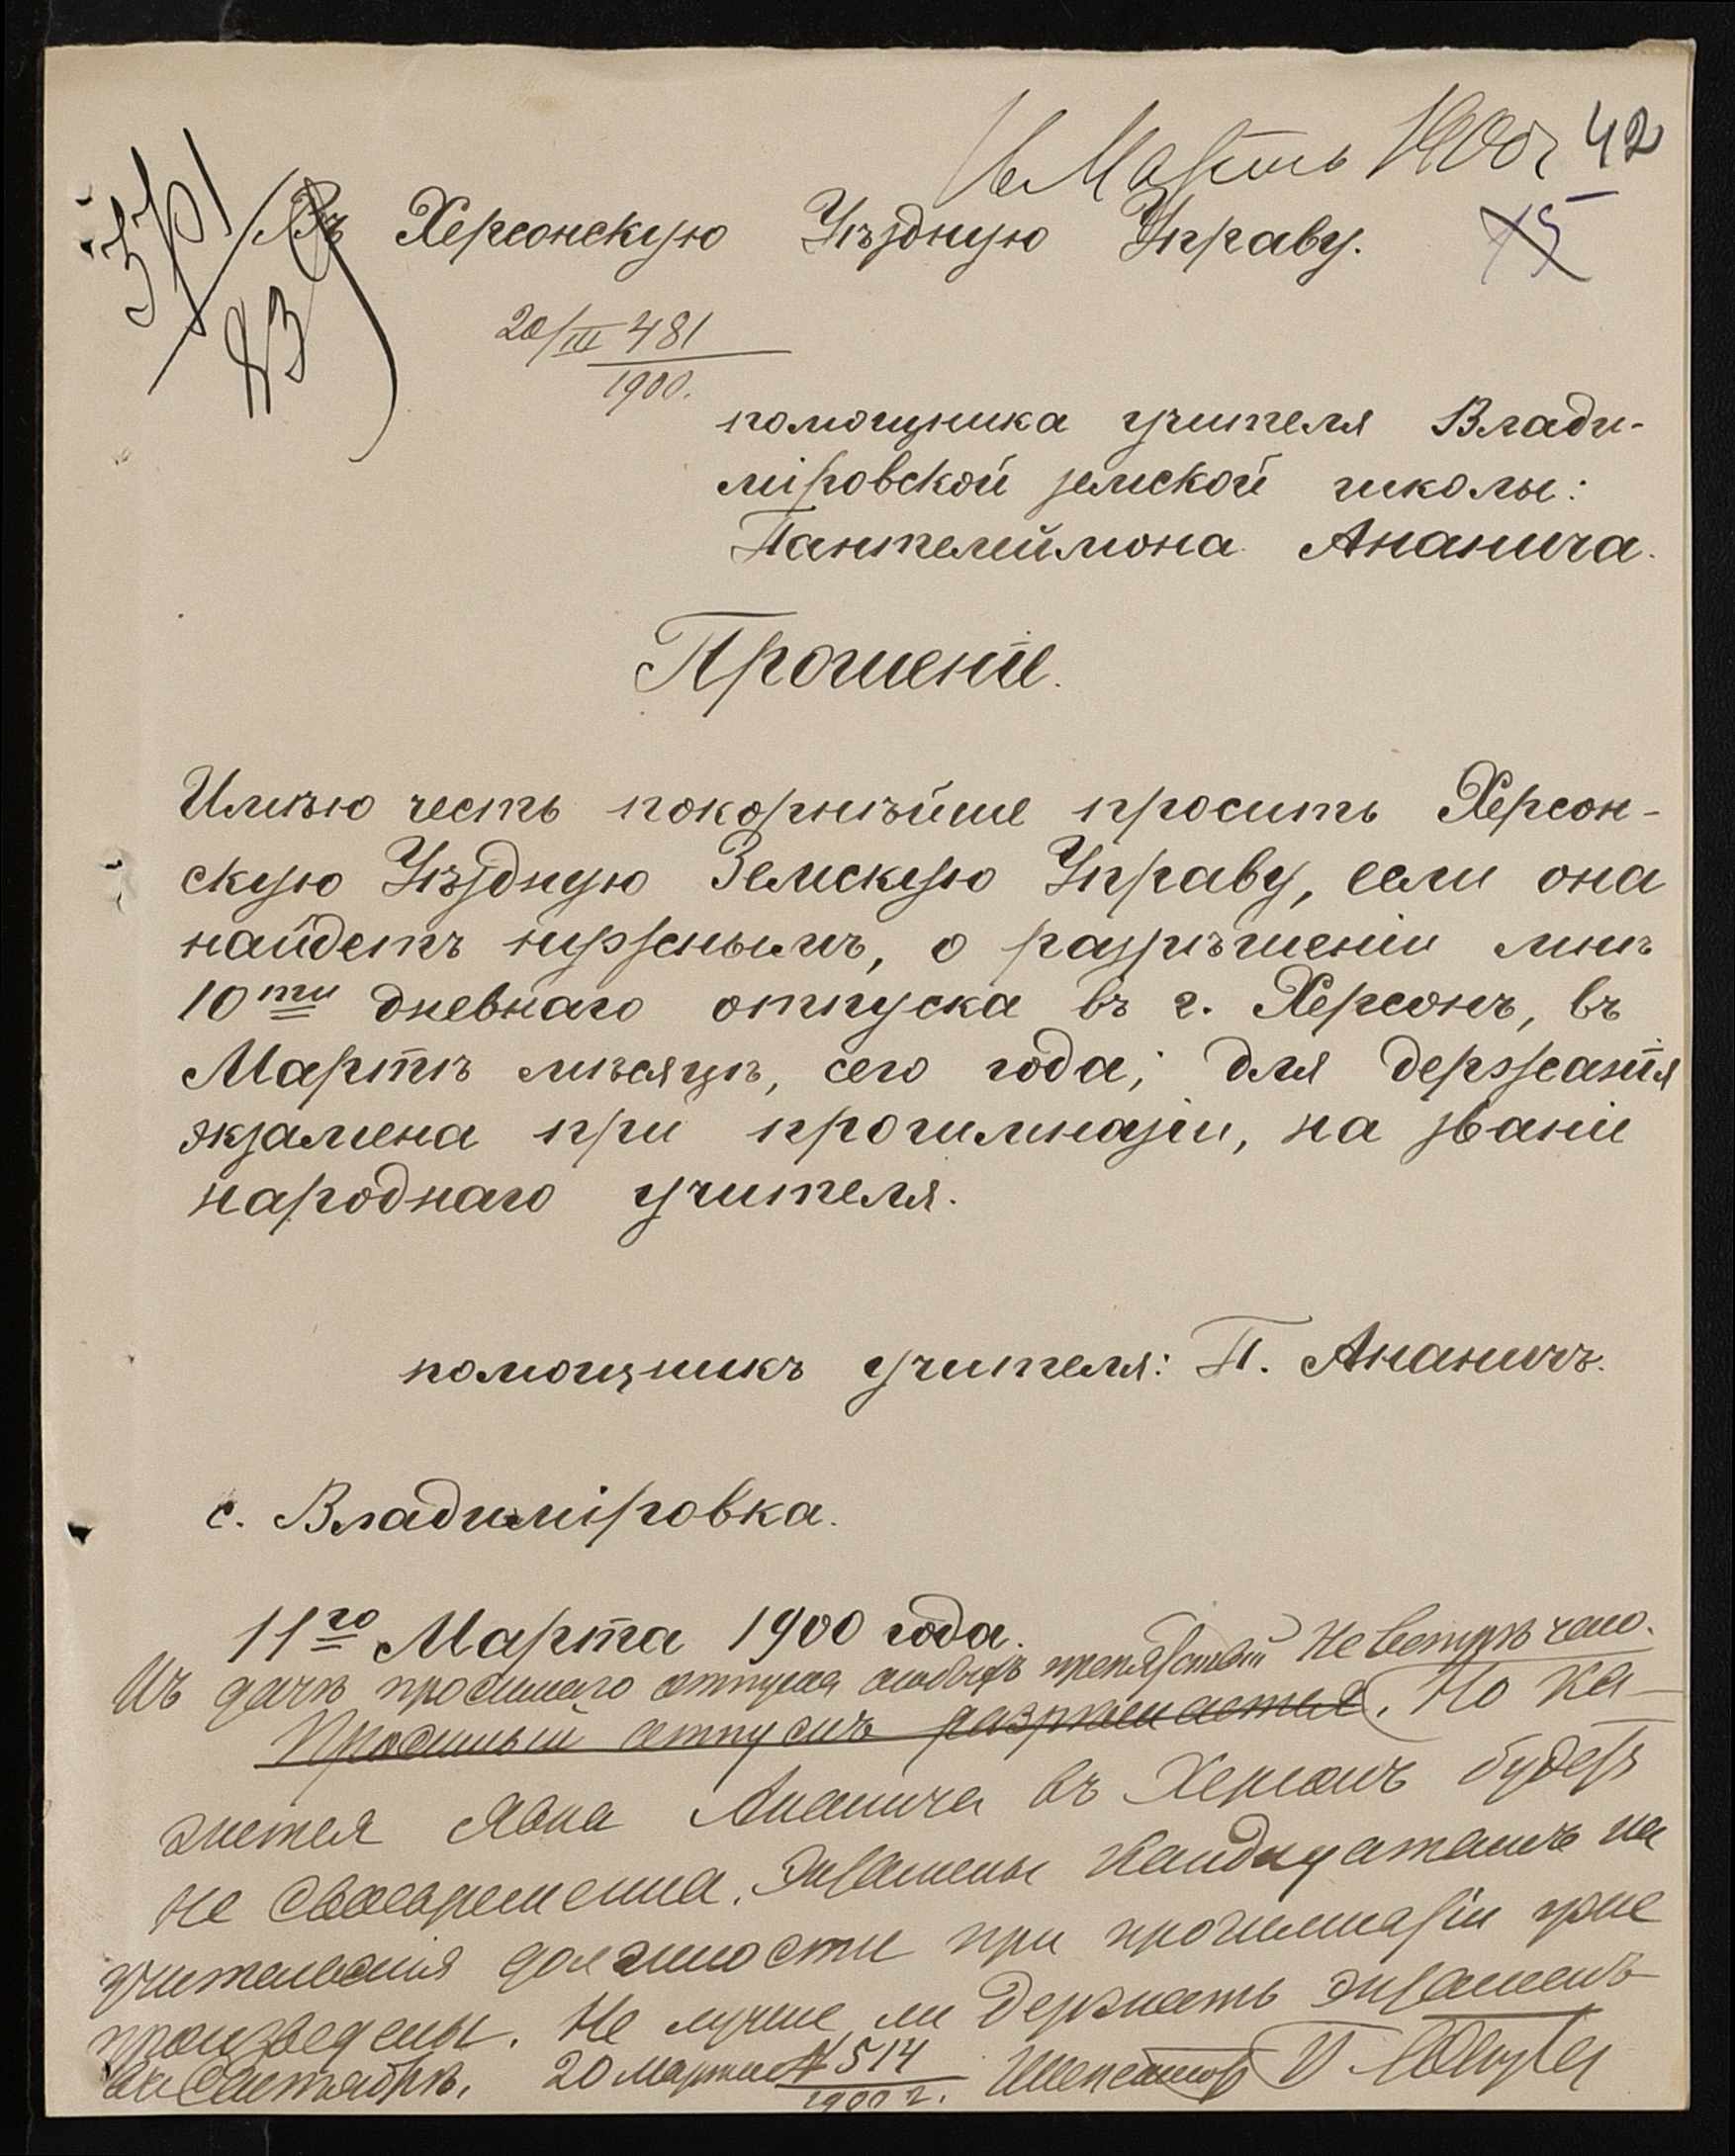 16 Мартъ 1900 г 42
Въ Херсонскую Уѣздную Управу.
15
20/III 481
1900.
помощника учителя Влади-
міровской земской школы:
Пантелеймона Ананича.
Прошеніе.
Имѣю честь покорнѣйше просить Херсон-
скую Уѣздную Земскую Управу, если она
найдетъ нужнымъ, о разрѣшеніи мнѣ
10ти дневнаго отпуска въ г. Херсонъ, въ
Мартѣ мѣсяцѣ, сего года; для держанія
экзамена при прогимназіи, на званіе
народнаго учителя.
помощникъ учителя: П. Ананичъ.
с. Владиміровка.
11го Марта 1900 года.
Къ дачѣ просимаго отпуска особыхъ препятствій не встрѣчаю.
Просимый отпускъ разрѣшается. Но ка-
жется явка Ананича въ Херсонъ будетъ
не своевременна. Экзамены кандидатамъ на
учительскія должности при прогимназіи уже
произведены. Не лучше ли держать экзаменъ
въ Сентябрѣ. 20 Марта № 514
1900 г.